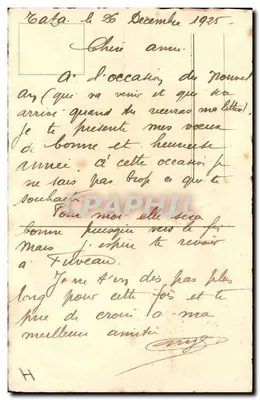 Taza, le 26 Decembre 1925.
Chère amie
A l'occasion du nouvel
An (qui va venir et qui sera
arrivé quand tu recevras ma lettre)
je te presente mes voeux
de bonne et heureuse
année. A cette occasion je
ne sais pas trop ce que te
souhaiter.
Pour moi elle sera
bonne puisque vers la fin
mais j'espère te revoir
à Fuveau.
Je ne t'en dis pas plus
long pour cette fois et te
prie de croire à ma
meilleure amitié
H